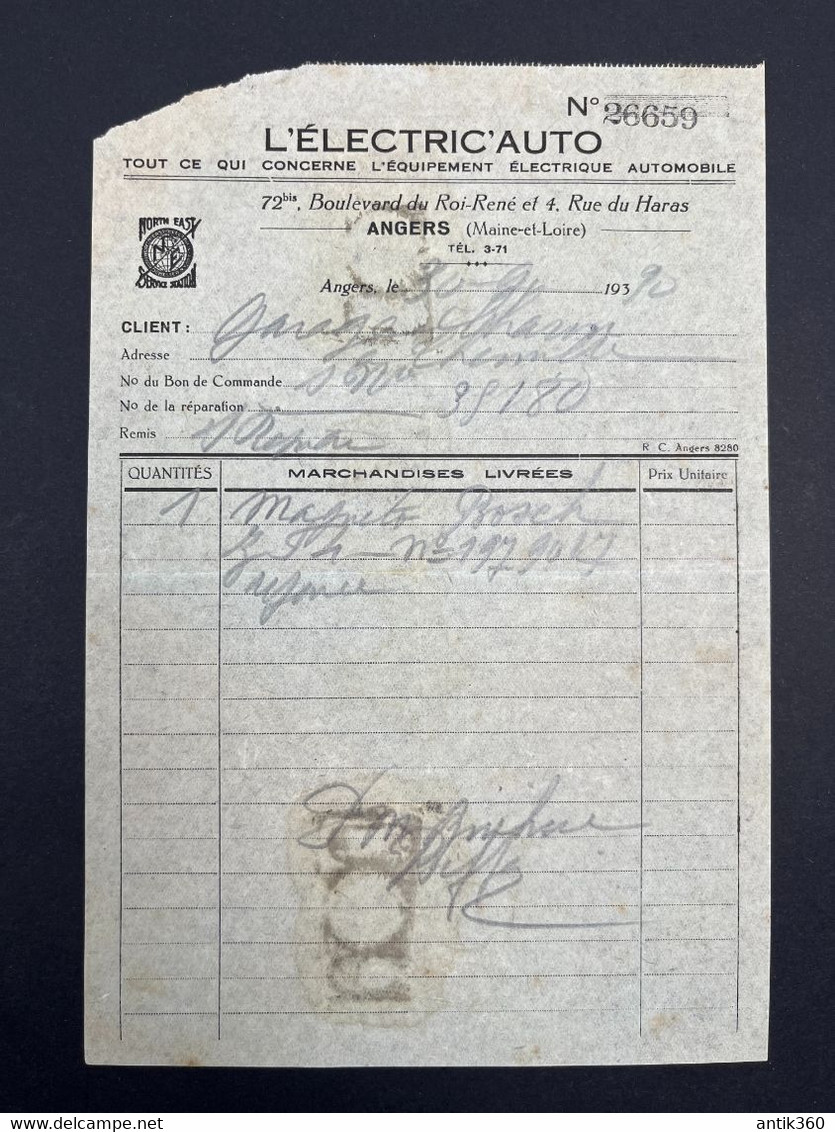 N° 26659
L'ÉLECTRIC'AUTO
TOUT CE QUI CONCERNE L'ÉQUIPEMENT ÉLECTRIQUE AUTOMOBILE
72bis, Boulevard du Roi-René et 4, Rue du Haras
NORTH EAST
NE
SERVICE STATION
ANGERS (Maine-et-Loire)
TÉL. 3-71
Angers, le 193
CLIENT : Garage
Adresse
No du Bon de Commande
No de la réparation 38180
Remis
R. C. Angers 8280
QUANTITÉS MARCHANDISES LIVRÉES Prix Unitaire
1 Magneto Bosch
No
antik360